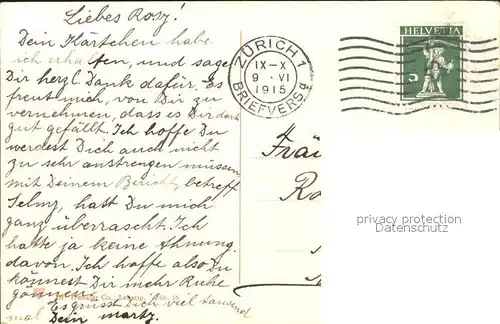 Liebes Rosy!
Dein Kärtchen habe
ich erhalten, und sage
Dir herzl. Dank dafür. Es
freut mich, von Dir zu
vernehmen, dass es Dir dort
gut gefällt. Ich hoffe Du
werdest Dich auch nicht
zu sehr anstrengen müssen
mit Deinem Bericht betreff
hast Du mich
ganz überrascht. Ich
hatte ja keine Ahnung
davon. Ich hoffe also Du
könnest Dir mehr Ruhe
gönnen.
Es grüsst Dich viel tausend
mal Dein
ZÜRICH 1
IX-X
9 VI
1915
BRIEFVERS
HELVETIA
5
Fräu
Ro
privacy protection
Datenschutz